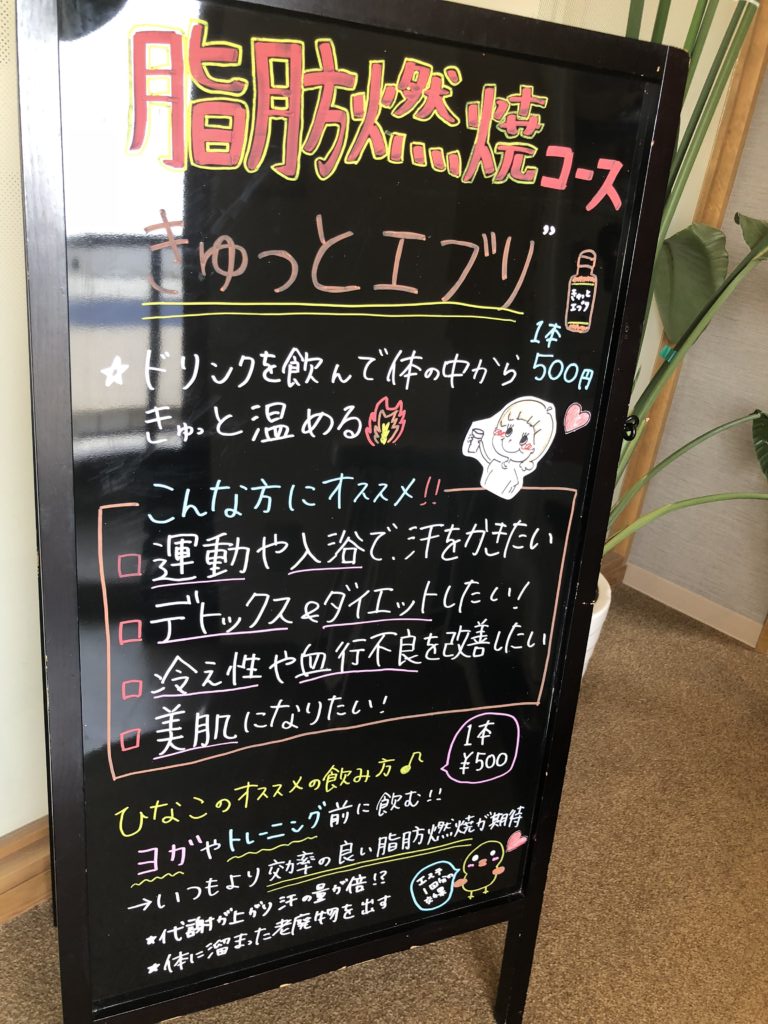 脂肪燃焼コース
きゅっとエブリ”
きゅっと
エブリ
1本
500円
☆ドリンクを飲んで体の中から
きゅっと温める
こんな方にオススメ!!
□ 運動や入浴で、汗をかきたい
□ デトックス&ダイエットしたい!
□ 冷え性や血行不良を改善したい
□ 美肌になりたい!
1本
¥500
ひなこのオススメの飲み方♪
ヨガやトレーニング前に飲む!!
→いつもより効率の良い脂肪燃焼が期待
エステ
1回分の
効果
★代謝が上がり汗の量が倍!?
★体に溜まった老廃物を出す